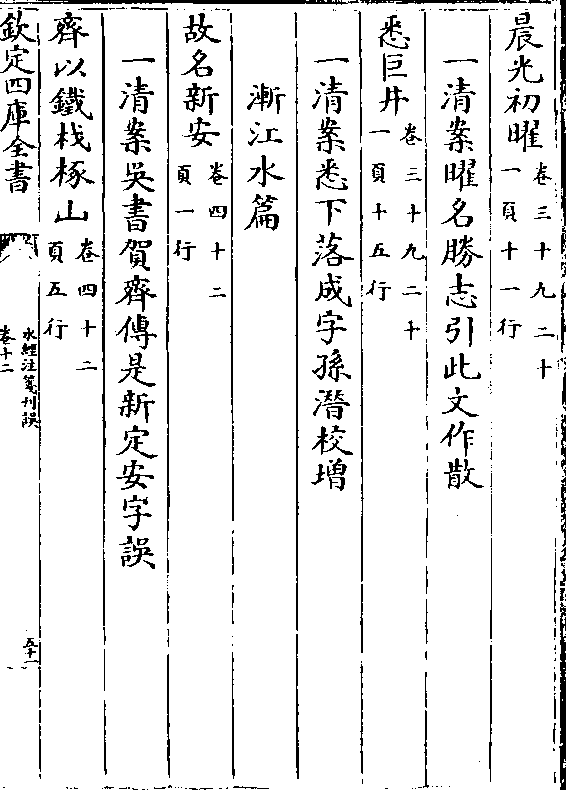 晨光初曜卷三十九二十一頁十一行
一清案曜名勝志引此文作散
悉巨井卷三十九二十一頁十五行
一清案悉下落成字孫潛校增
漸江水篇
故名新安卷四十二頁一行
一清案吳書賀齊傳是新定安字誤
齊以鐵杙椓山卷四十二頁五行
欽定四庫全書
水經注箋刊誤
卷十二
五十一